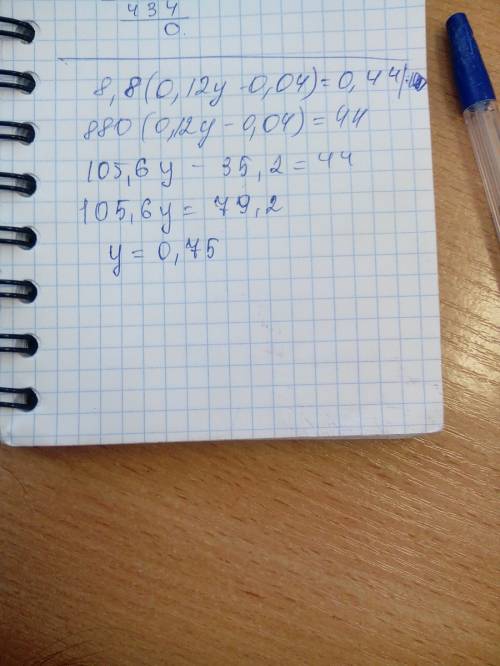 434
0.
8,8(0,12y-0,04)=0,44|·100
880(0,12y-0,04)=44
105,6y-35,2=44
105,6y=79,2
y=0,75